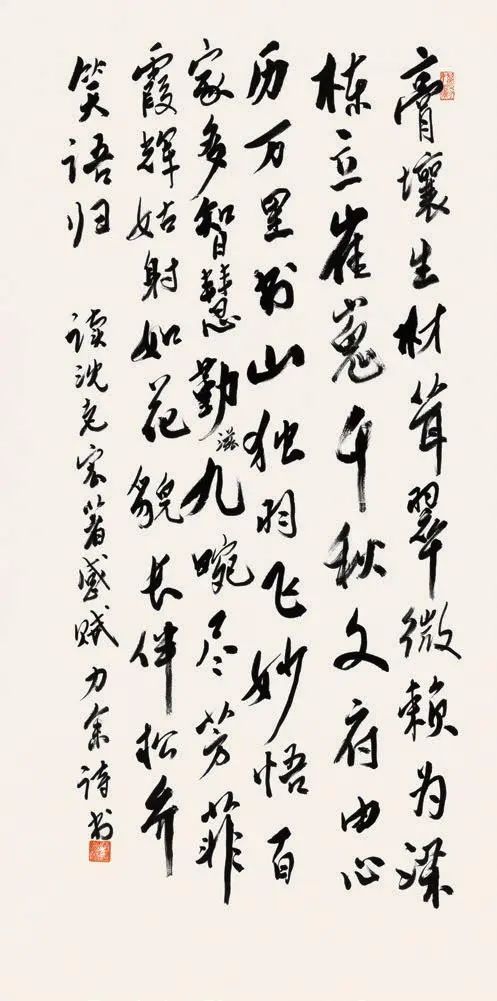 膏壤生材茸翠微赖为梁
栋立崔嵬千秋文府由心
历万里书山独羽飞妙悟百
家多智慧勤滋九畹尽芳菲
霞辉姑射如花貌长伴松乔
笑语归 读沈著感赋力余诗书